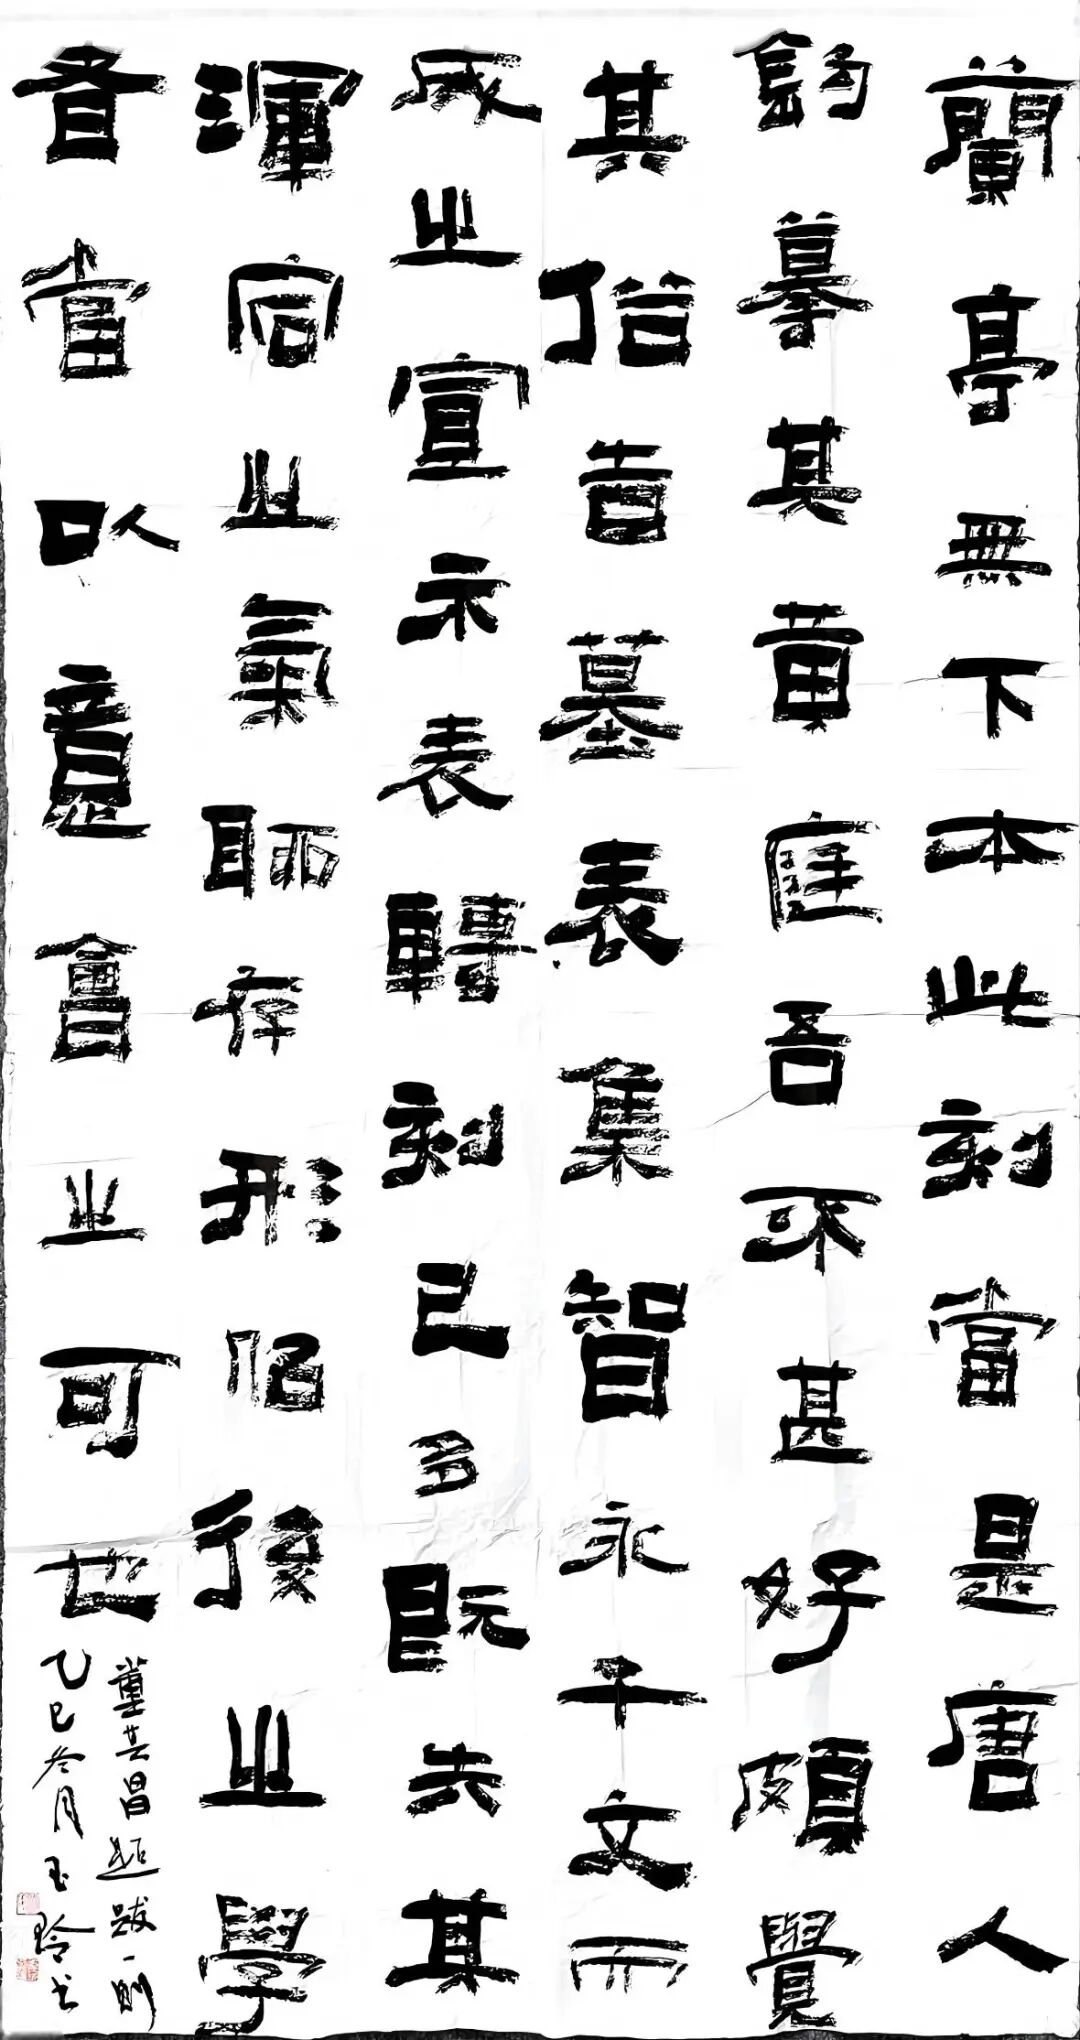 蘭亭無下本此刻當是唐人
鈎摹其黄庭吾不甚好頗覺
其俗告墓表集智永千文而
成之宣示表轉刻已多既失其
渾厚之氣聊存形佀後之學
者當以意會之可也
董其昌題跋一則
乙巳冬月玉玲书